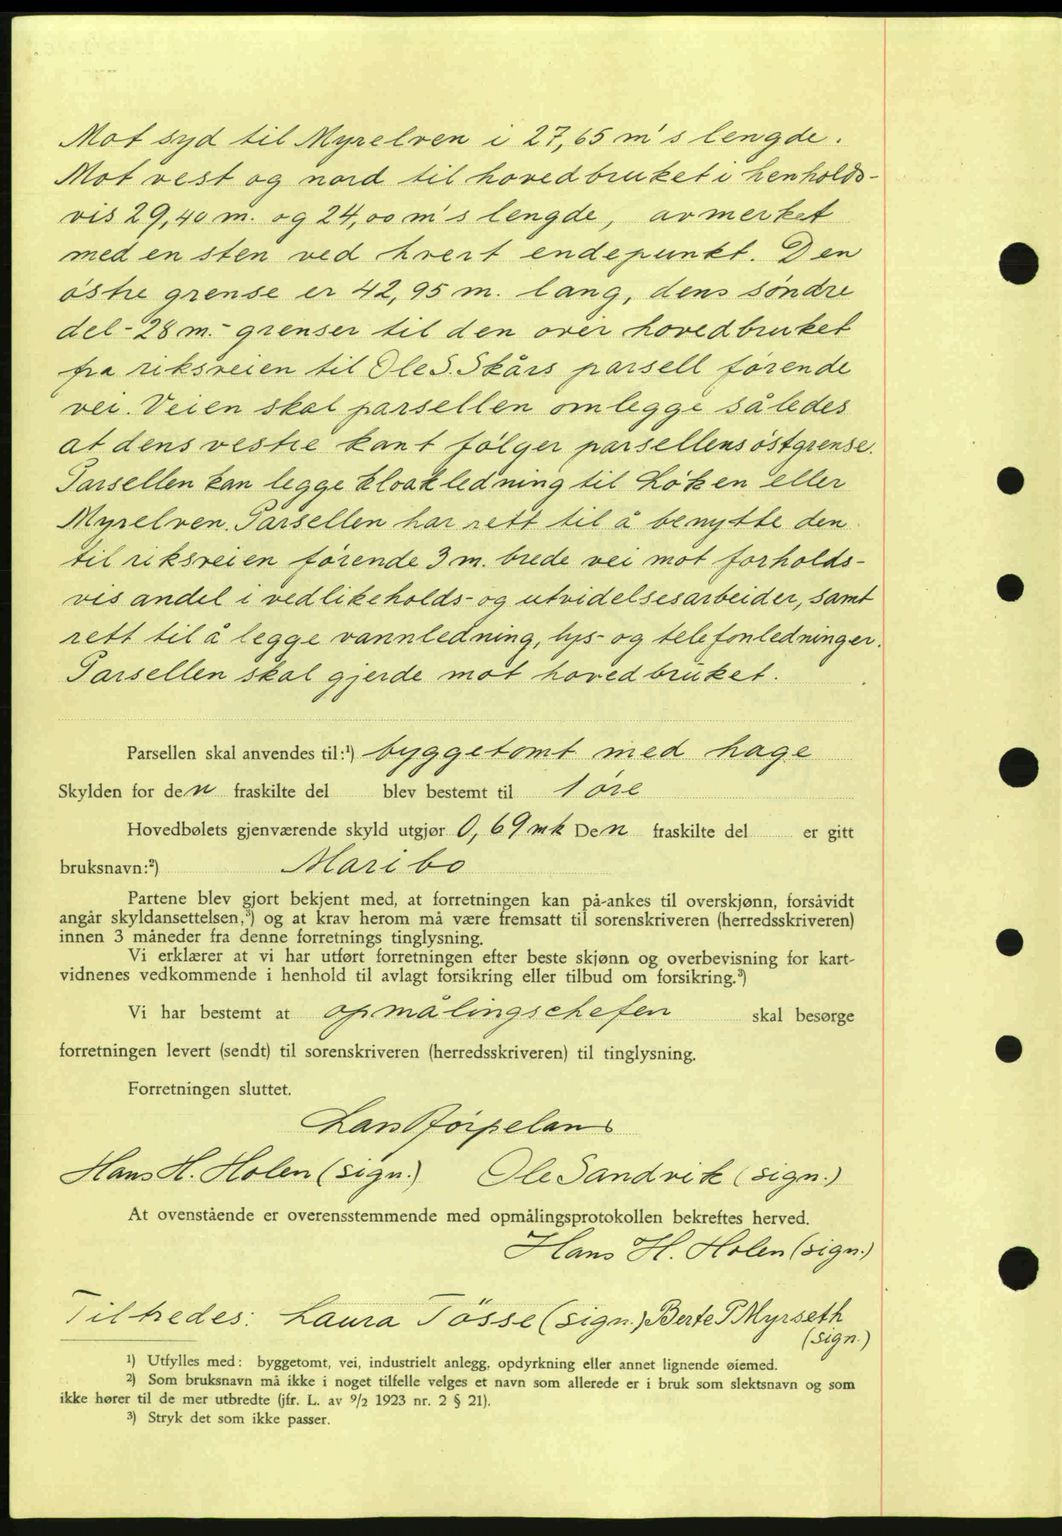 Mot syd til Myrelven i 27,65 m's lengde.
Mot vest og nord til hovedbruket i henholds-
vis 29,40 m. og 24,00 m's lengde, avmerket
med en sten ved hvert endepunkt. Den
østre grense er 42,95 m. lang, dens søndre
del - 28 m. - grenser til den over hovedbruket
fra riksveien til Ole S. Skårs parsell førende
vei. Veien skal parsellen omlegge således
at dens vestre kant følger parsellens østgrense.
Parsellen kan legge kloakledning til Løken eller
Myrelven. Parsellen har rett til å benytte den
til riksveien førende 3 m. brede vei mot forholds-
vis andel i vedlikeholds- og utvidelsesarbeider, samt
rett til å legge vannledning, lys- og telefonledninger.
Parsellen skal gjerde mot hovedbruket.
Parsellen skal anvendes til:¹) byggetomt med hage
Skylden for den fraskilte del blev bestemt til 1 øre
Hovedbølets gjenværende skyld utgjør 0,69 mk Den fraskilte del er gitt
bruksnavn:²) Maribo
Partene blev gjort bekjent med, at forretningen kan på-ankes til overskjønn, forsåvidt
angår skyldansettelsen,³) og at krav herom må være fremsatt til sorenskriveren (herredsskriveren)
innen 3 måneder fra denne forretnings tinglysning.
Vi erklærer at vi har utført forretningen efter beste skjønn og overbevisning for kart-
vidnenes vedkommende i henhold til avlagt forsikring eller tilbud om forsikring.³)
Vi har bestemt at opmålingschefen skal besørge
forretningen levert (sendt) til sorenskriveren (herredsskriveren) til tinglysning.
Forretningen sluttet.
Lars Bjørpeland
Hans H. Holen (sign.) Ole Sandvik (sign.)
At ovenstående er overensstemmende med opmålingsprotokollen bekreftes herved.
Hans H. Holen (sign.)
Tiltredes: Laura Tösse (sign.) Berte P Myrseth
(sign.)
¹) Utfylles med: byggetomt, vei, industrielt anlegg, opdyrkning eller annet lignende øiemed.
²) Som bruksnavn må ikke i noget tilfelle velges et navn som allerede er i bruk som slektsnavn og som
ikke hører til de mer utbredte (jfr. L. av 9/2 1923 nr. 2 § 21).
³) Stryk det som ikke passer.